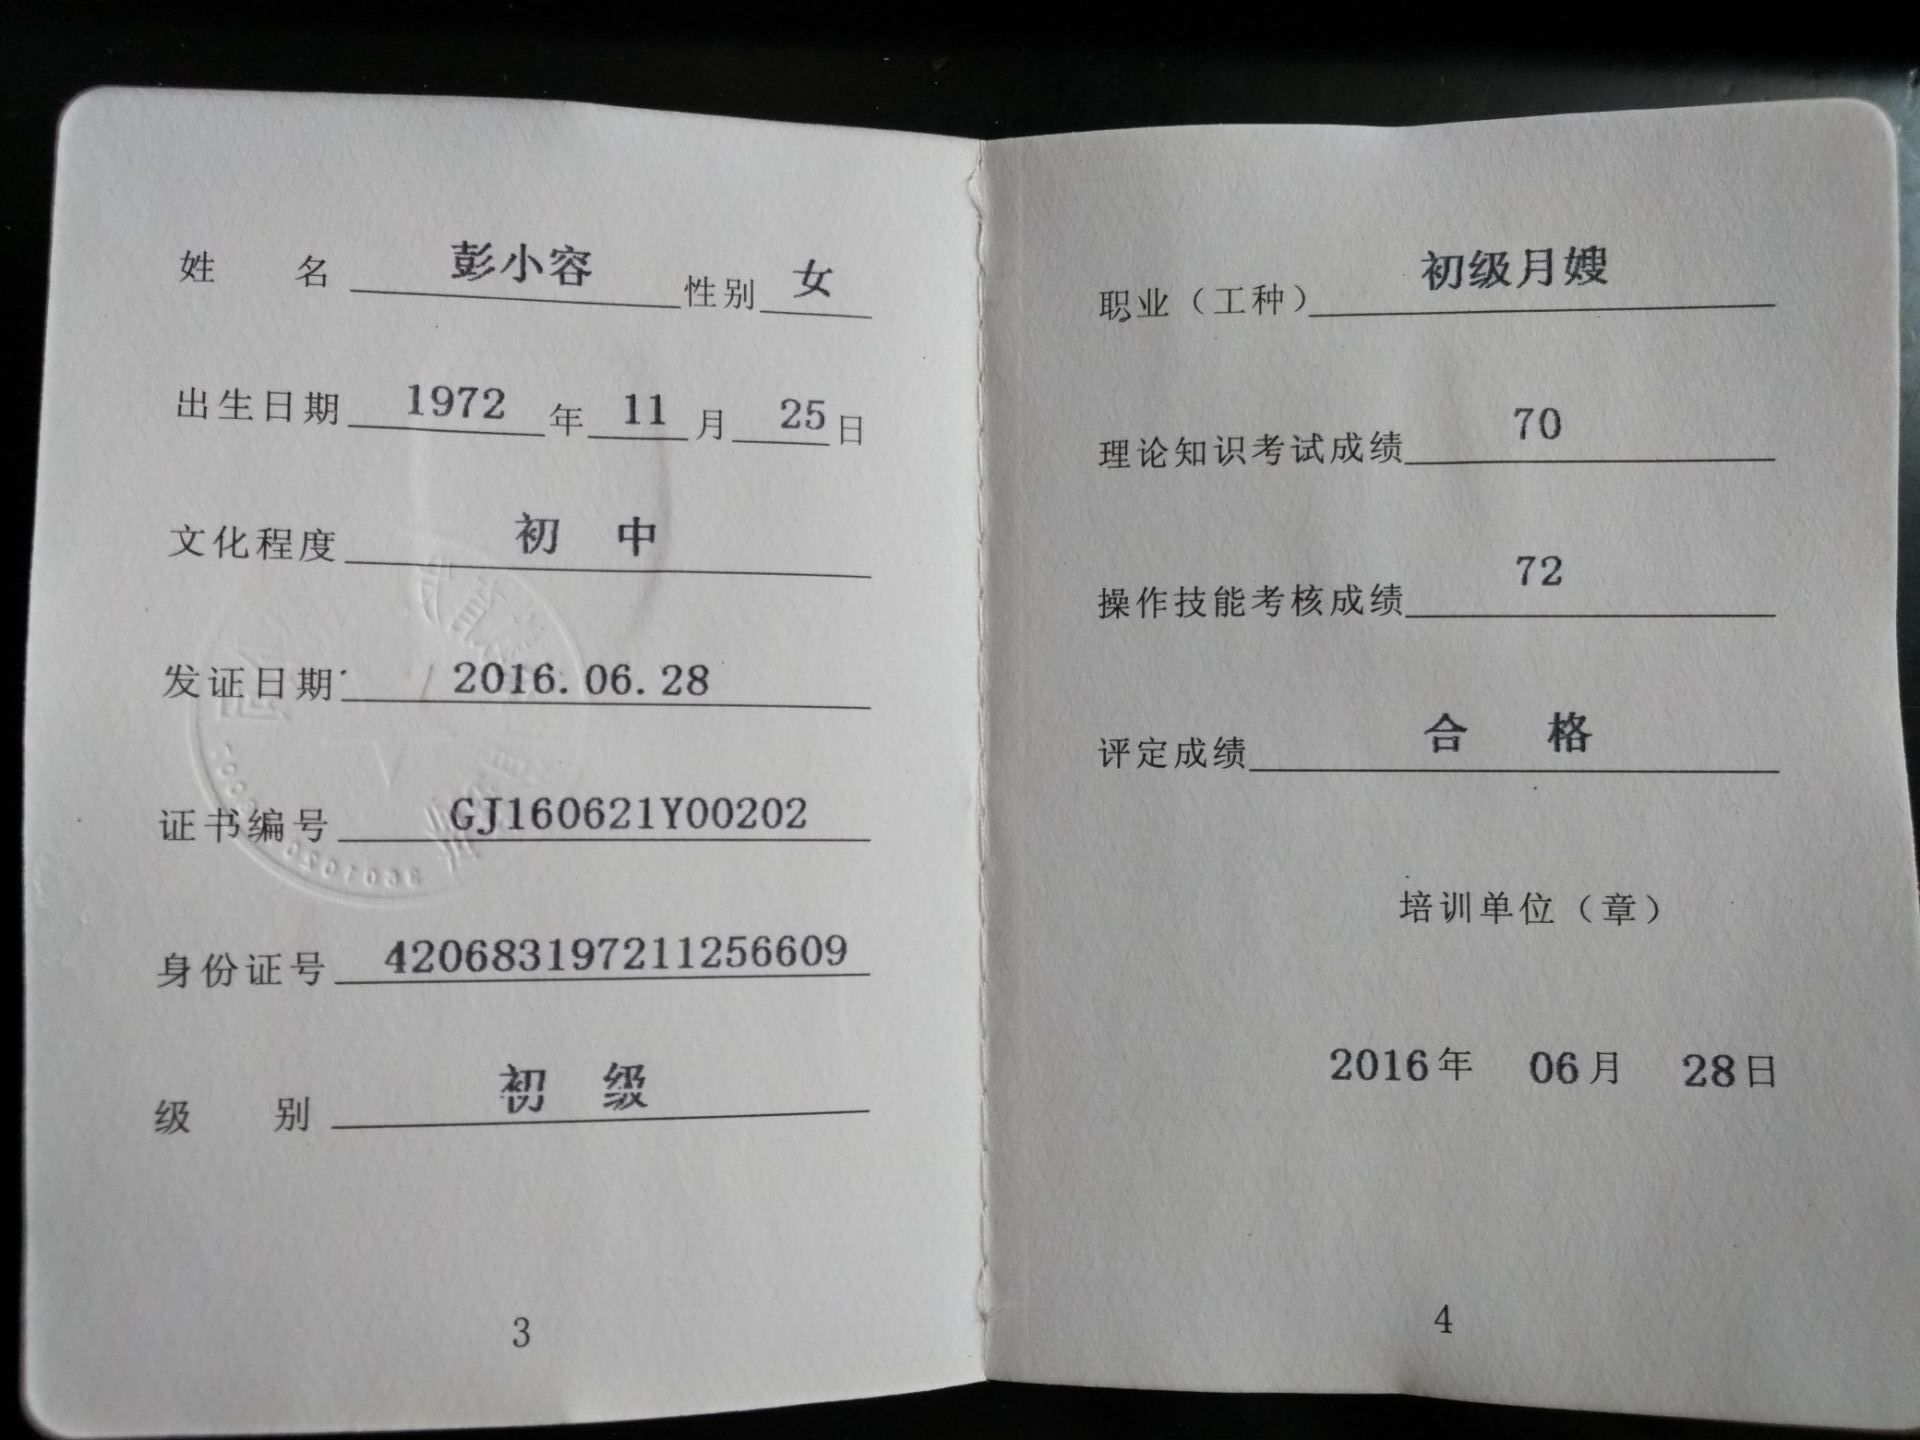 姓 名 彭小容 性别 女
出生日期 1972 年 11 月 25 日
文化程度 初 中
发证日期 2016.06.28
证书编号 GJ160621Y00202
身份证号 420683197211256609
级 别 初 级
3
职业（工种） 初级月嫂
理论知识考试成绩 70
操作技能考核成绩 72
评定成绩 合 格
培训单位（章）
2016年 06月 28日
4